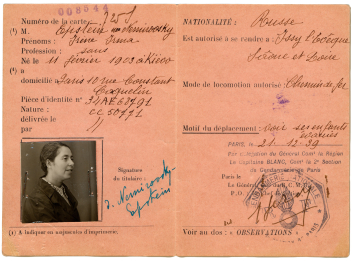 008644
Numéro de la carte :
(¹) M. Epstein née Némirovsky
Prénoms : Irène Irma
Profession : sans
Né le 11 février 1903 à Kiew
(¹) à
domicilié Paris 10 rue Constant
Coquelin
Pièce d'identité n°
Nature : CC 50771
délivrée le
par
Signature
du titulaire :
I. Némirovsky
Epstein
(1) A indiquer en majuscules d'imprimerie.
NATIONALITÉ : Russe
Est autorisé à se rendre à : Issy l'Evêque
Saône et Loire
Mode de locomotion autorisé : Chemin de fer
Motif du déplacement : voir ses enfants
évacués
PARIS, le 21.12.39
Par délégation du Général Comt la Région
Le Capitaine BLANC, Comt la 2e Section
de Gendarmerie de Paris
Paris le
Le Général
Voir au dos : « OBSERVATIONS »